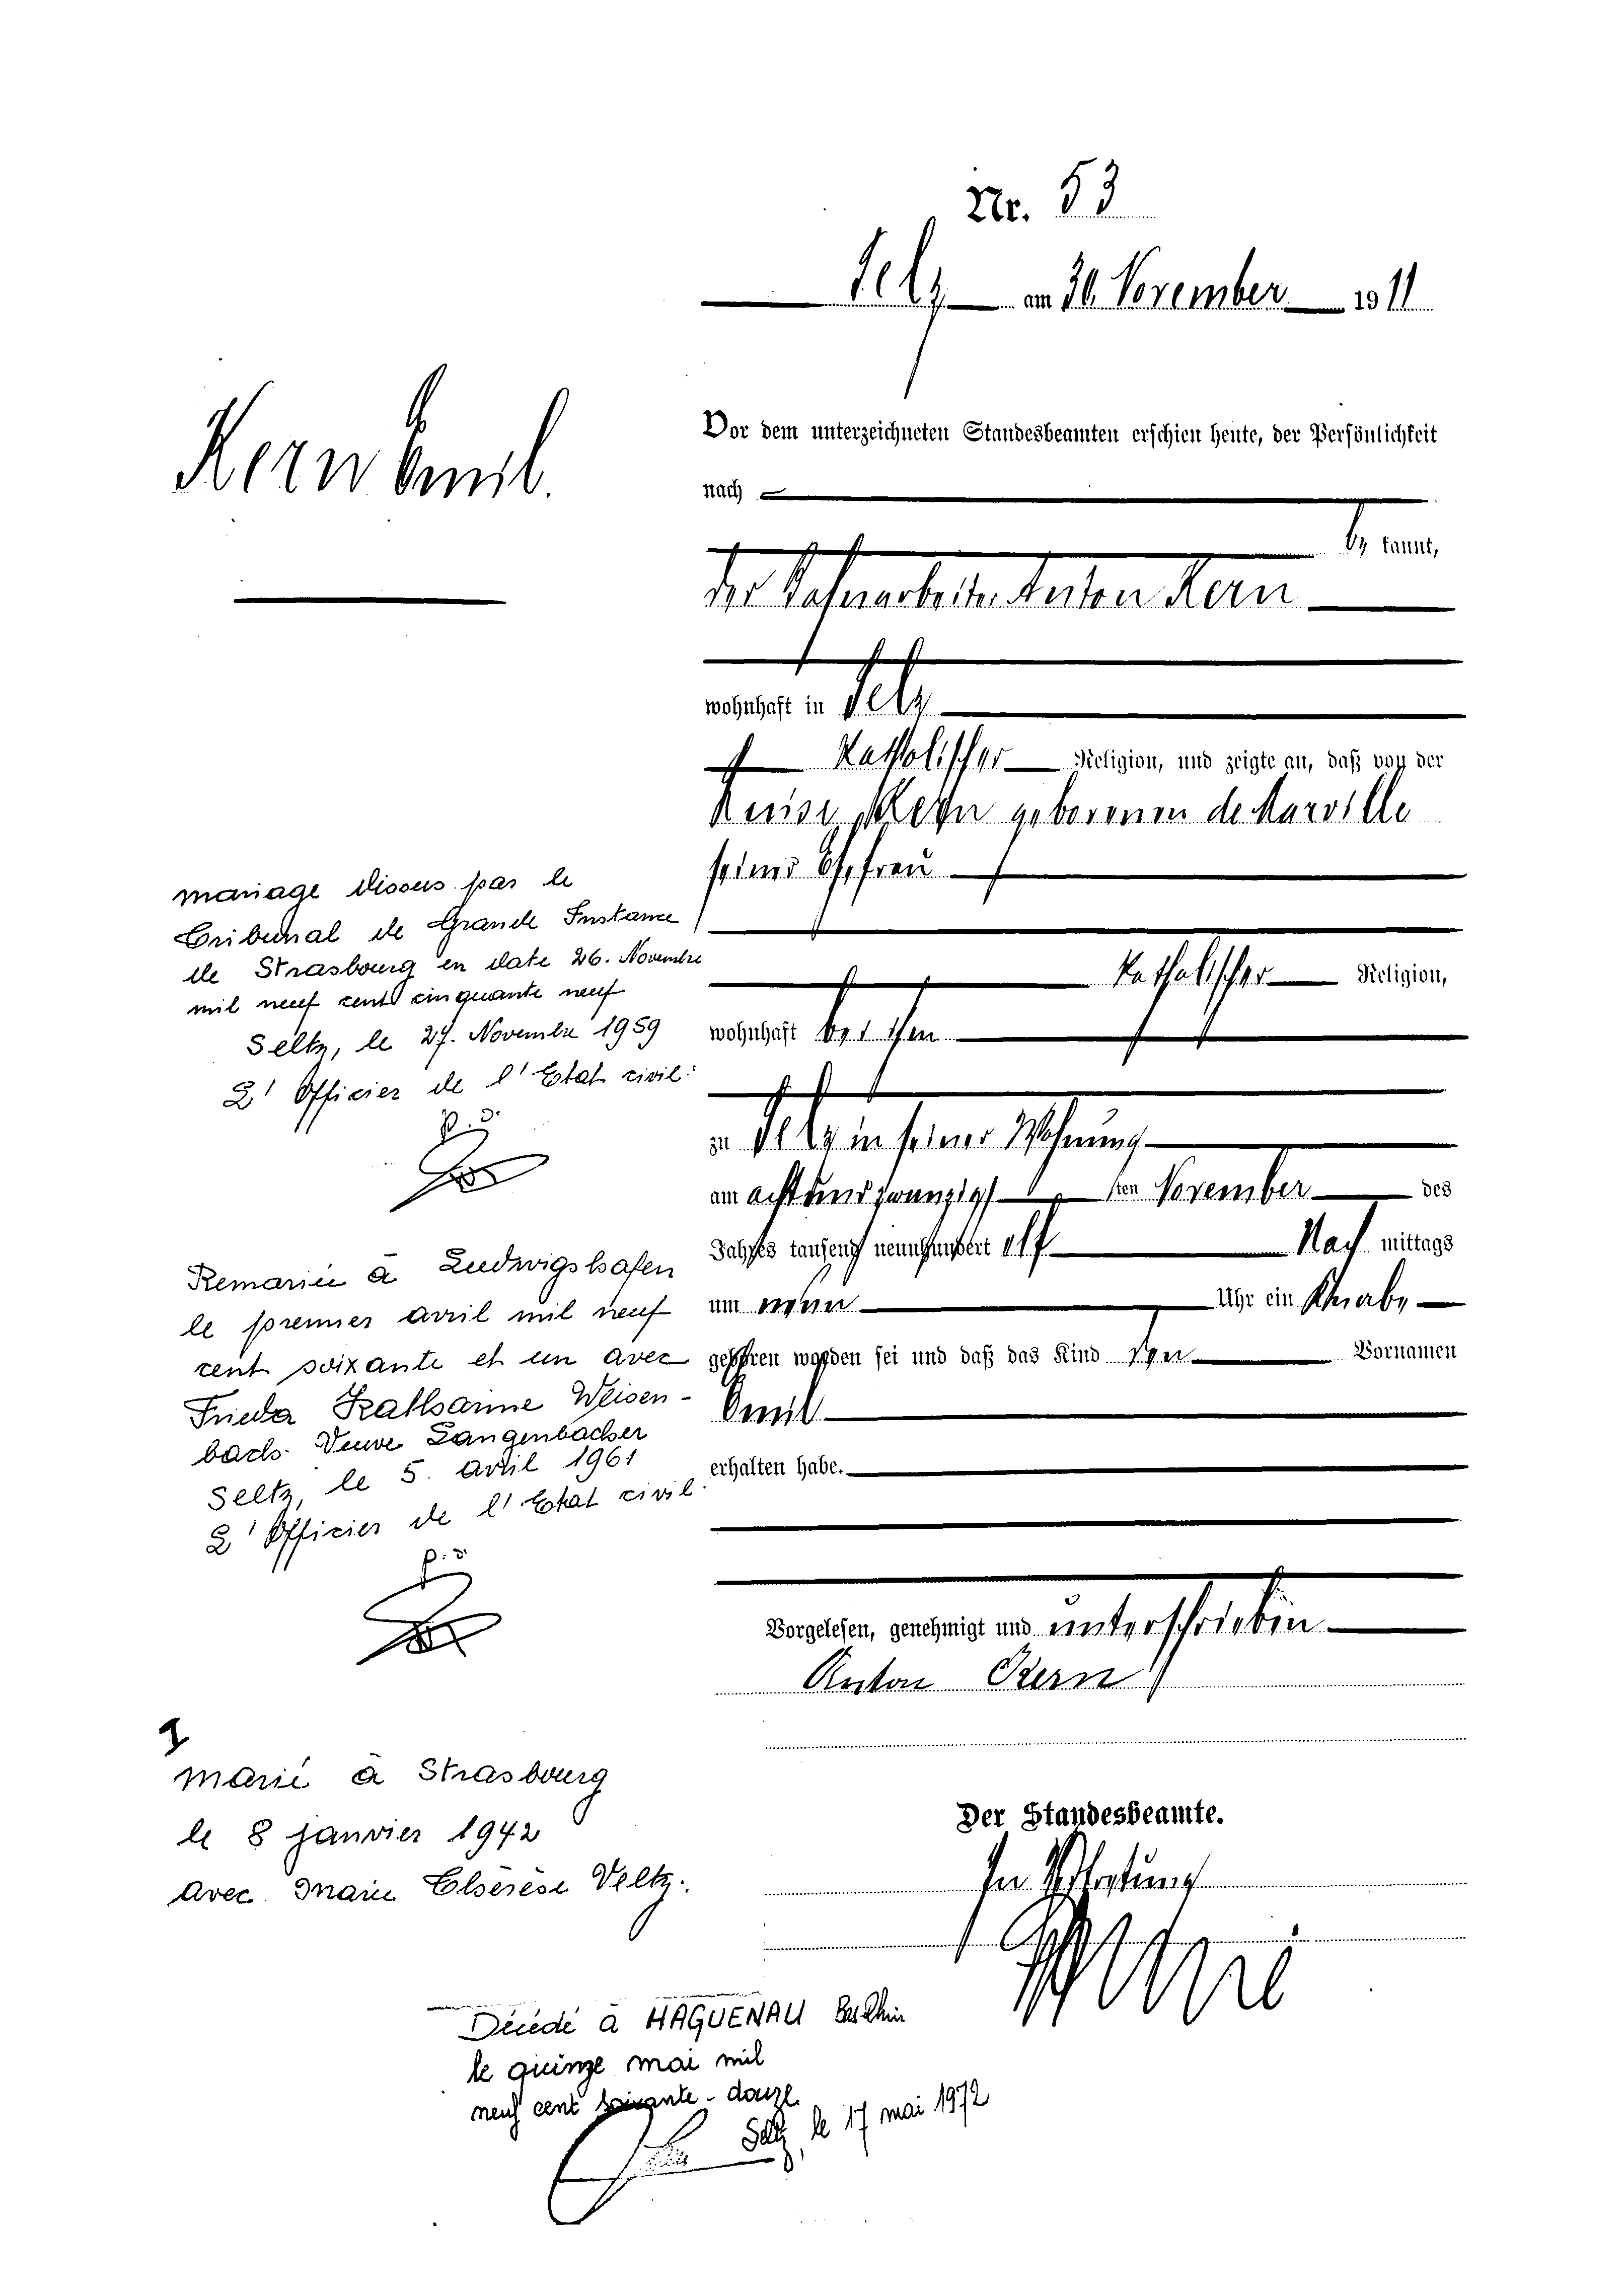 Nr. 53
Selz am 30. November 1911
Kern Emil.
Vor dem unterzeichneten Standesbeamten erschien heute, der Persönlichkeit
nach
be kannt,
der Bahnarbeiter Anton Kern
wohnhaft in Selz
katholischer Religion, und zeigte an, daß von der
Luise Kern geborenen de Marville
seiner Ehefrau
katholischer Religion,
wohnhaft bei ihm
zu Selz in seiner Wohnung
am achtundzwanzigsten November des
Jahres tausend neunhundert elf Nach mittags
um neun Uhr ein Knabe
geboren worden sei und daß das Kind den Vornamen
Emil
erhalten habe.
Vorgelesen, genehmigt und unterschrieben
Anton Kern
Der Standesbeamte.
In Vertretung
mariage dissous par le
Tribunal de Grande Instance
de Strasbourg en date 26. Novembre
mil neuf cent cinquante neuf
Seltz, le 27. Novembre 1959
L'Officier de l'Etat civil:
p.d.
Remarié à Ludwigshafen
le premier avril mil neuf
cent soixante et un avec
Frieda Katharine Weisen-
bach. Veuve Langenbacher
Seltz, le 5. avril 1961
L'Officier de l'Etat civil.
p.d.
marié à Strasbourg
le 8 janvier 1942
avec Marie Thérèse Veltz.
Décédé à HAGUENAU Bas Rhin
le quinze mai mil
neuf cent soixante-douze
Seltz, le 17 mai 1972